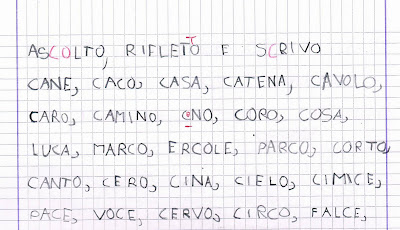 ASCOLTO, RIFLETTO E SCRIVO
CANE, CACO, CASA, CATENA, CAVOLO,
CARO, CAMINO, CORO, COSA,
LUCA, MARCO, ERCOLE, PARCO, CORTO,
CANTO, CERO, CINA, CIELO, CIMICE,
PACE, VOCE, CERVO, CIRCO, FALCE,